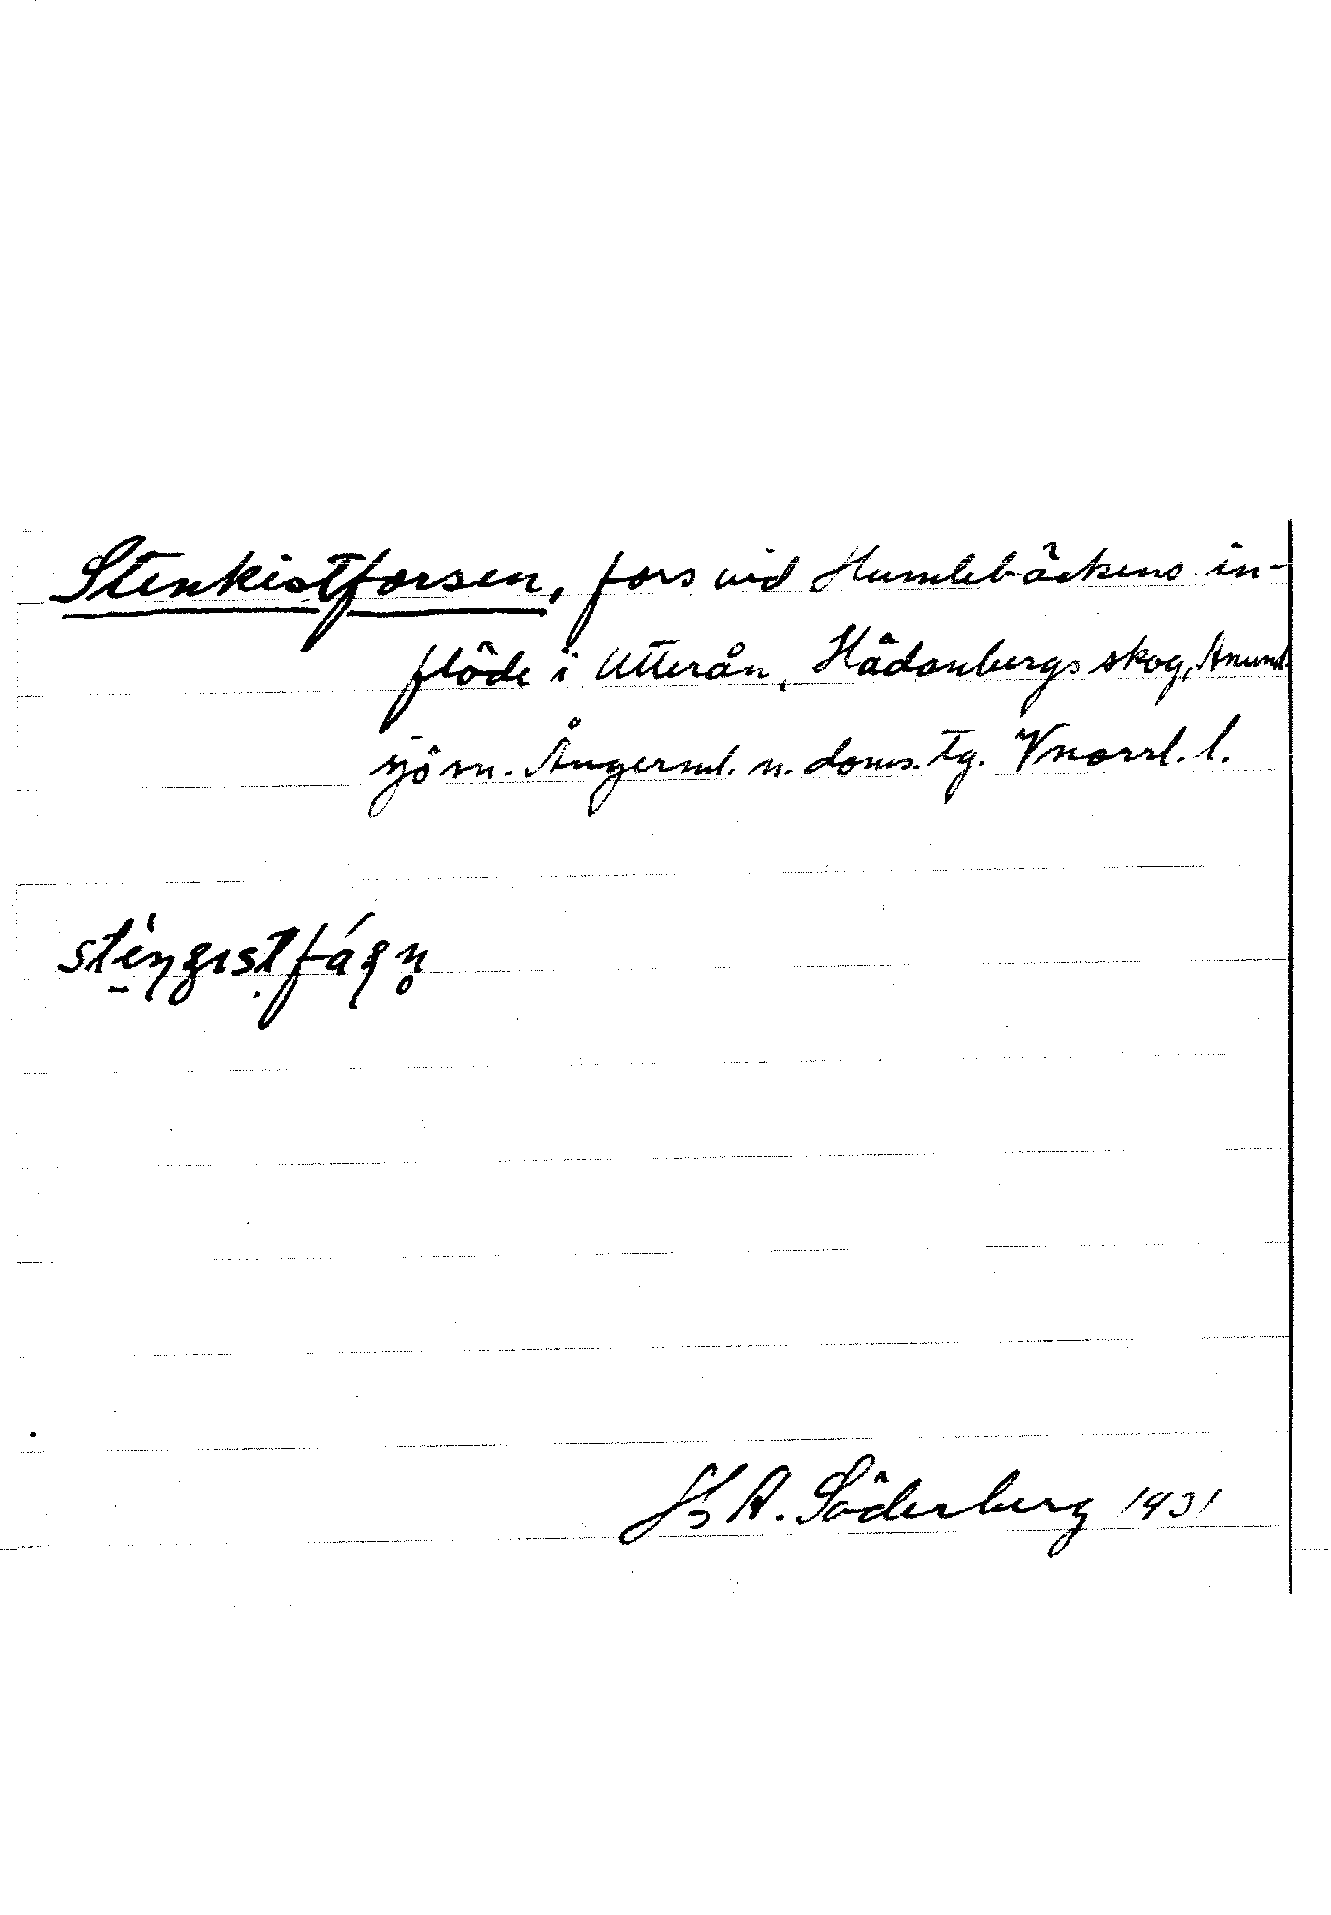 Stenkistforsen, fors vid Humlebäckens in-
flöde i Utterån, Hädanbergs skog, Anund-
sjö sn. Ångerml. n. doms. tg. Vnorrl. l.
Hj A. Söderberg 1931